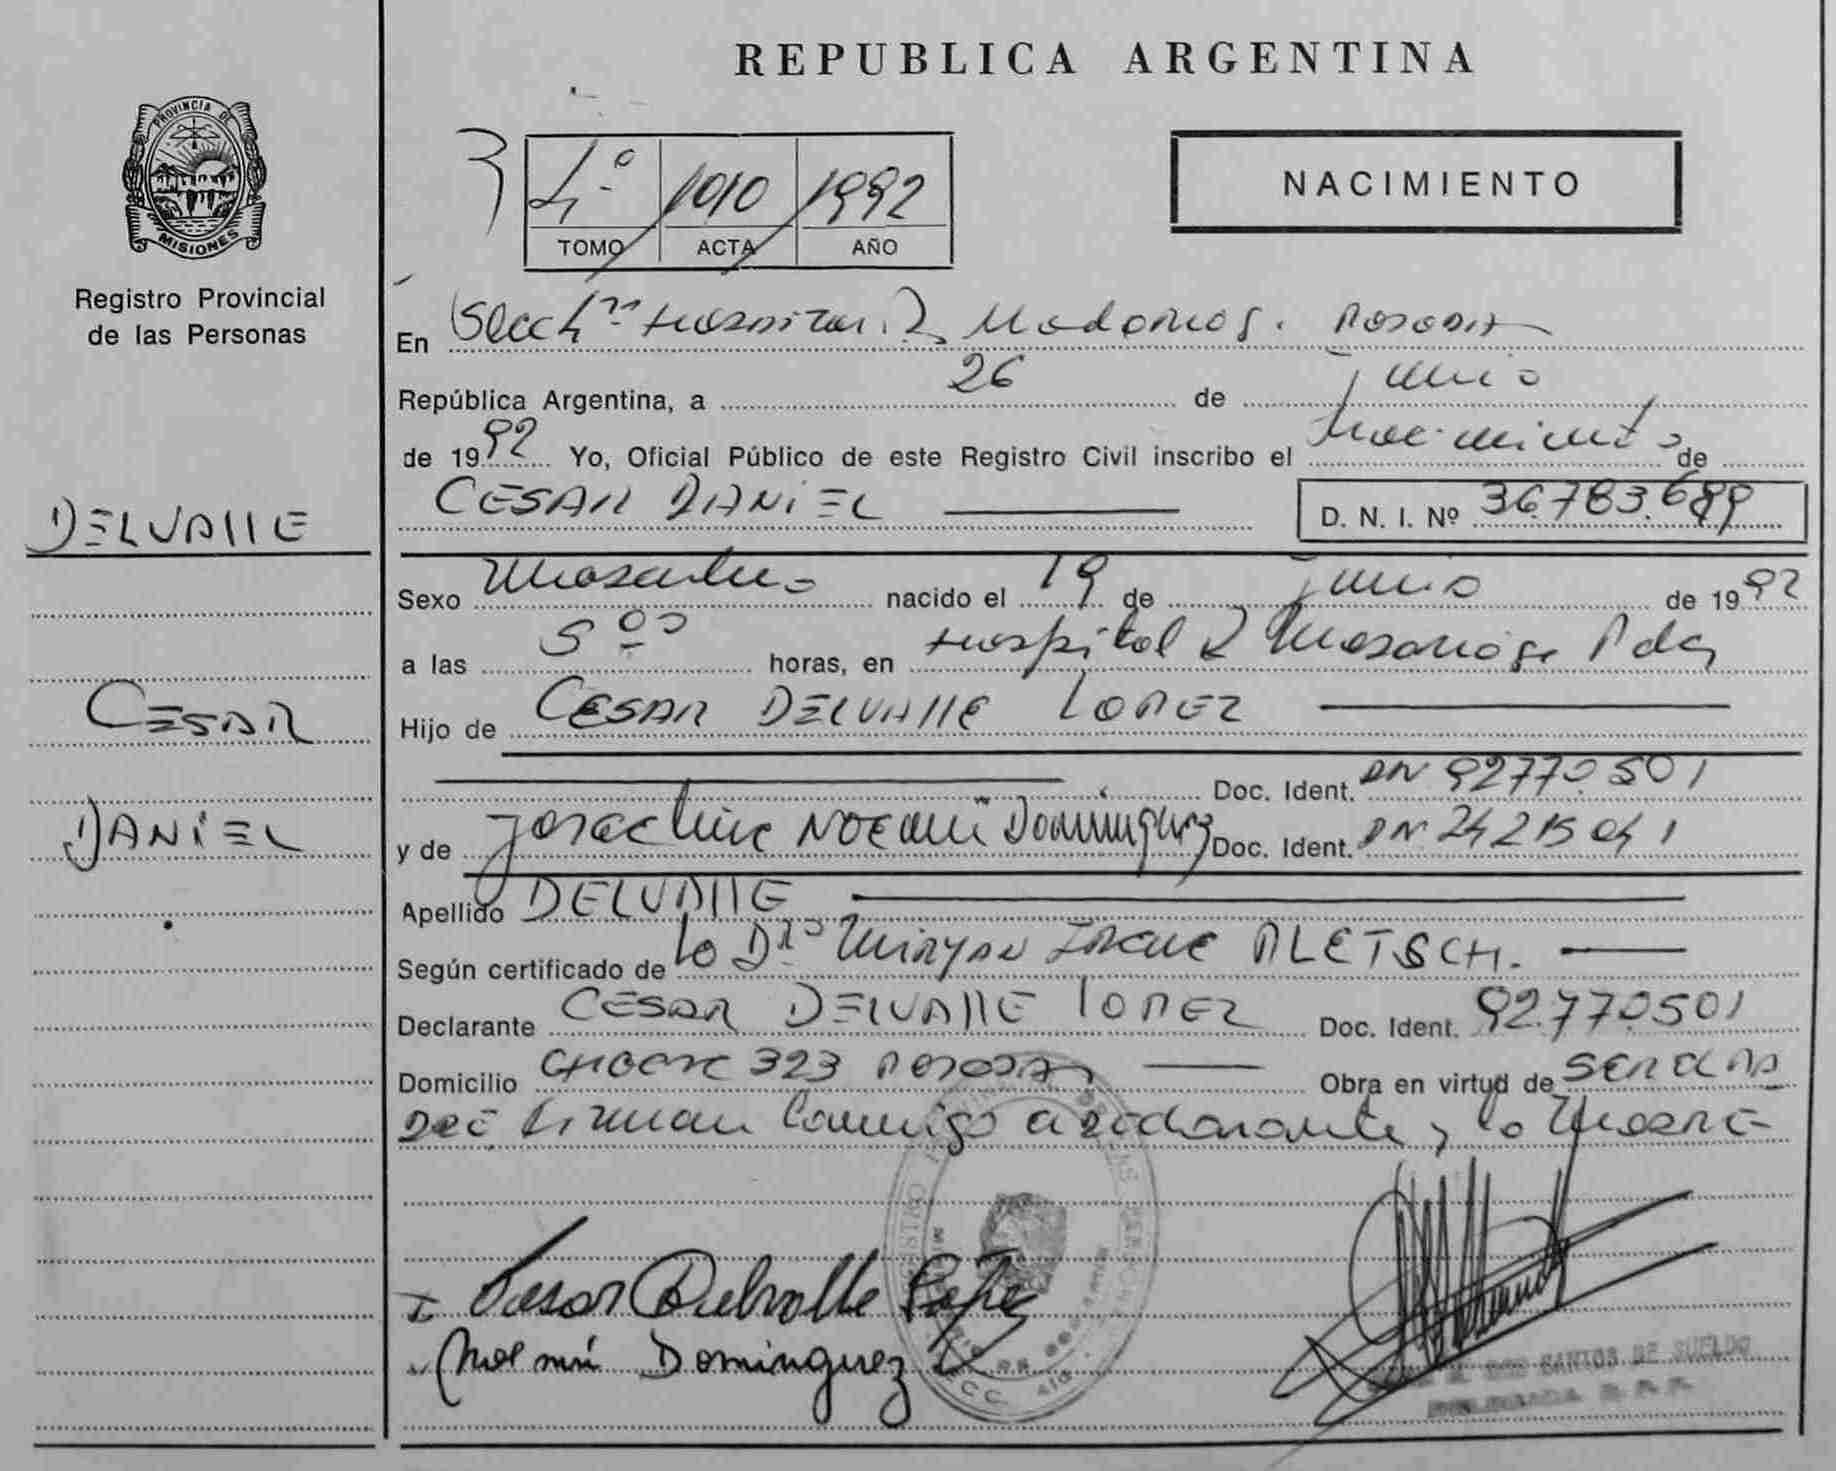 PROVINCIA DE
MISIONES
Registro Provincial
de las Personas
DELVALLE
CESAR
DANIEL
REPUBLICA ARGENTINA
NACIMIENTO
1010 1992
TOMO ACTA AÑO
En Secc Hospital R Madariaga. Posadas
República Argentina, a 26 de junio
de 1992 Yo, Oficial Público de este Registro Civil inscribo el nacimiento de
CESAR DANIEL D. N. I. Nº 36.783.689
Sexo Masculino nacido el 19 de junio de 1992
a las 5 00 horas, en Hospital R Madariaga Pdas
Hijo de CESAR DELVALLE LOPEZ
Doc. Ident. DNI 92770501
y de NOEMI Dominguez Doc. Ident. DNI 24215041
Apellido DELVALLE
Según certificado de la Dra Miryan IRENE ALETSCH.
Declarante CESAR DELVALLE LOPEZ Doc. Ident. 92.770501
Domicilio 323 POSADAS Obra en virtud de
Firman conmigo el declarante y la MADRE
Cesar Delvalle
Noemí Dominguez
DOS SANTOS DE SUELDO